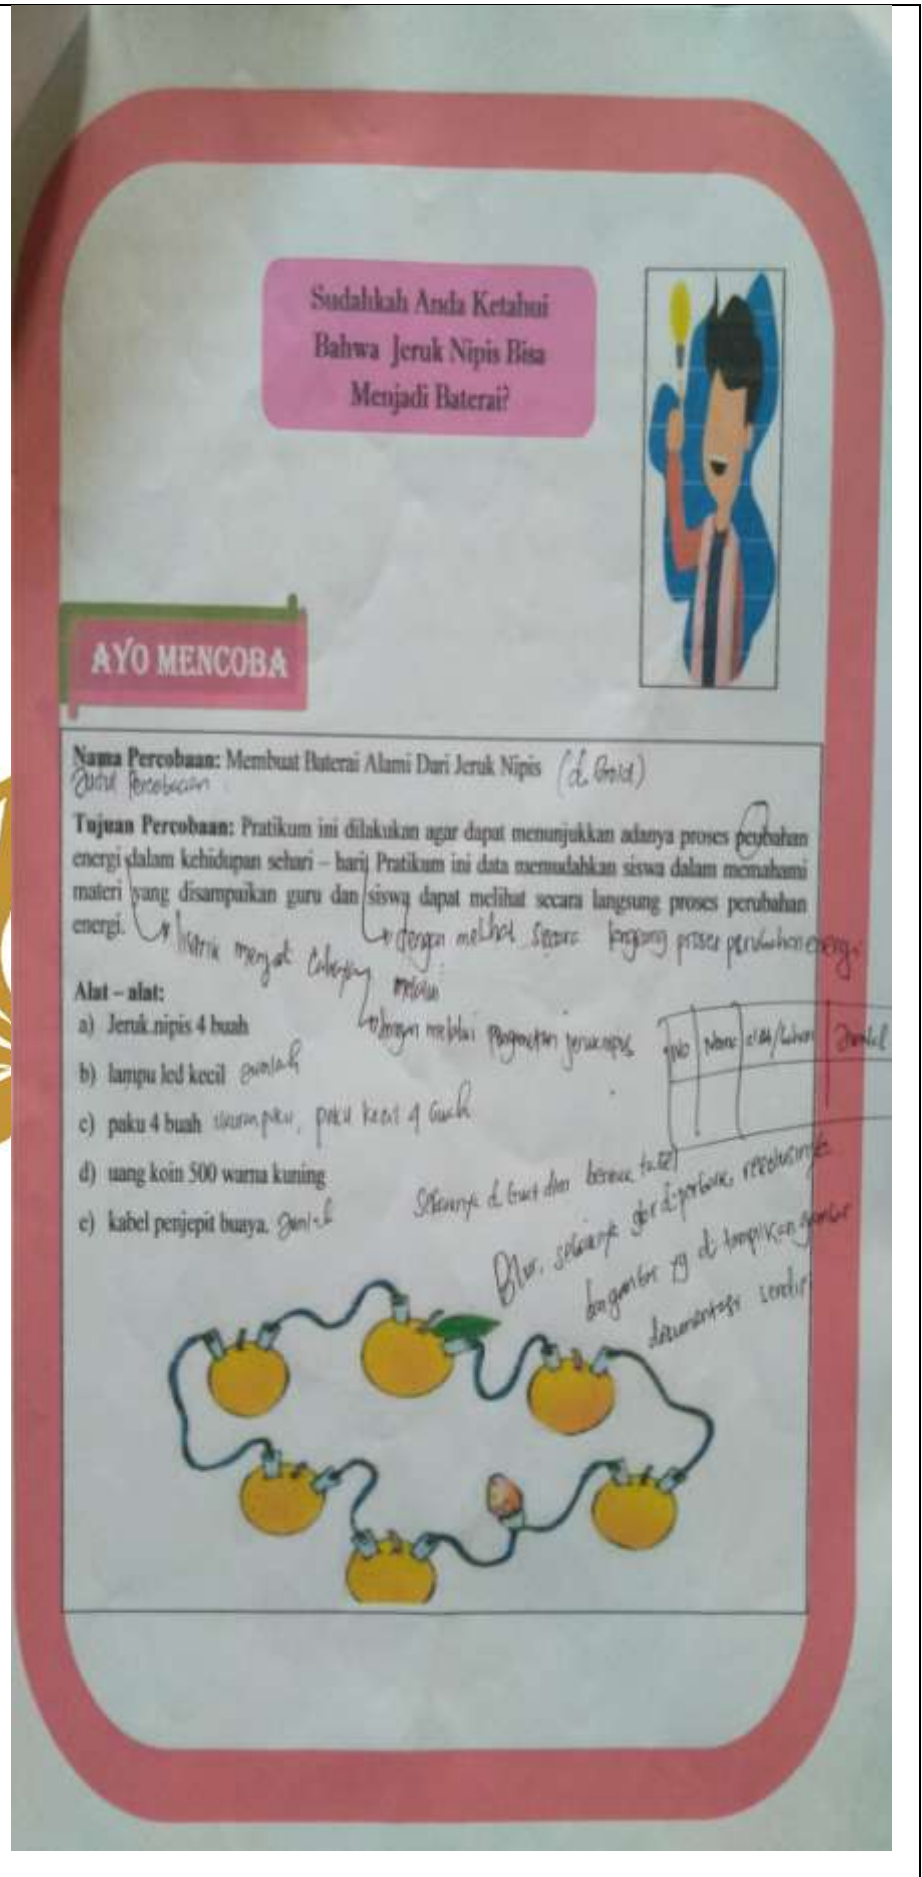 Sudahkah Anda Ketahui
Bahwa Jeruk Nipis Bisa
Menjadi Baterai?
AYO MENCOBA
Nama Percobaan: Membuat Baterai Alami Dari Jeruk Nipis (di Bold)
Judul Percobaan
Tujuan Percobaan: Pratikum ini dilakukan agar dapat menunjukkan adanya proses peubahan
energi dalam kehidupan sehari – hari. Pratikum ini data memudahkan siswa dalam memahami
materi yang disampaikan guru dan siswa dapat melihat secara langsung proses perubahan
energi.
dengan melihat secara langsung proses perubahan energi
listrik menjadi cahaya
melalui
Alat – alat:
dengan melalui pengamatan jeruk nipis
a) Jeruk nipis 4 buah
No Nama Jumlah
b) lampu led kecil Jumlah
c) paku 4 buah ukuran paku, paku kecil 4 buah
d) uang koin 500 warna kuning
Sebaiknya di buat dlm bentuk tabel
e) kabel penjepit buaya. Jumlah
Blur, sebaiknya gbr diperbaiki, resolusinya
yg di tampilkan gambar
dokumentasi sendiri